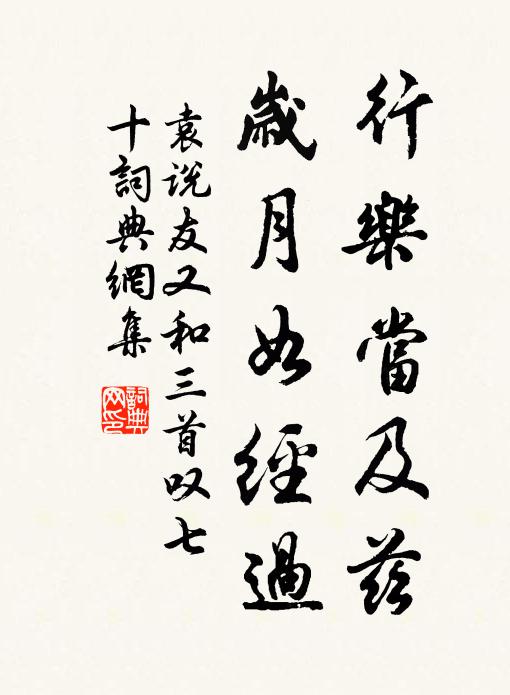 行樂當及茲
歲月如經過
袁说友又和三首叹七
十詞典網集
詞典
网印